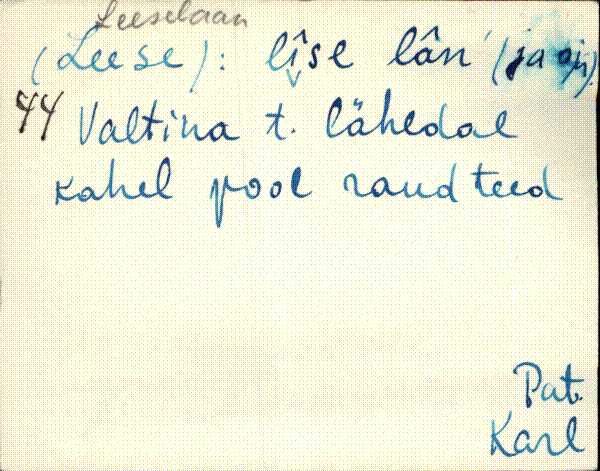 Leeselaan
(Leese): lîse lân (ja oja)
44 Valtina t. lähedal
kahel pool raudteed
Pat.
Karl